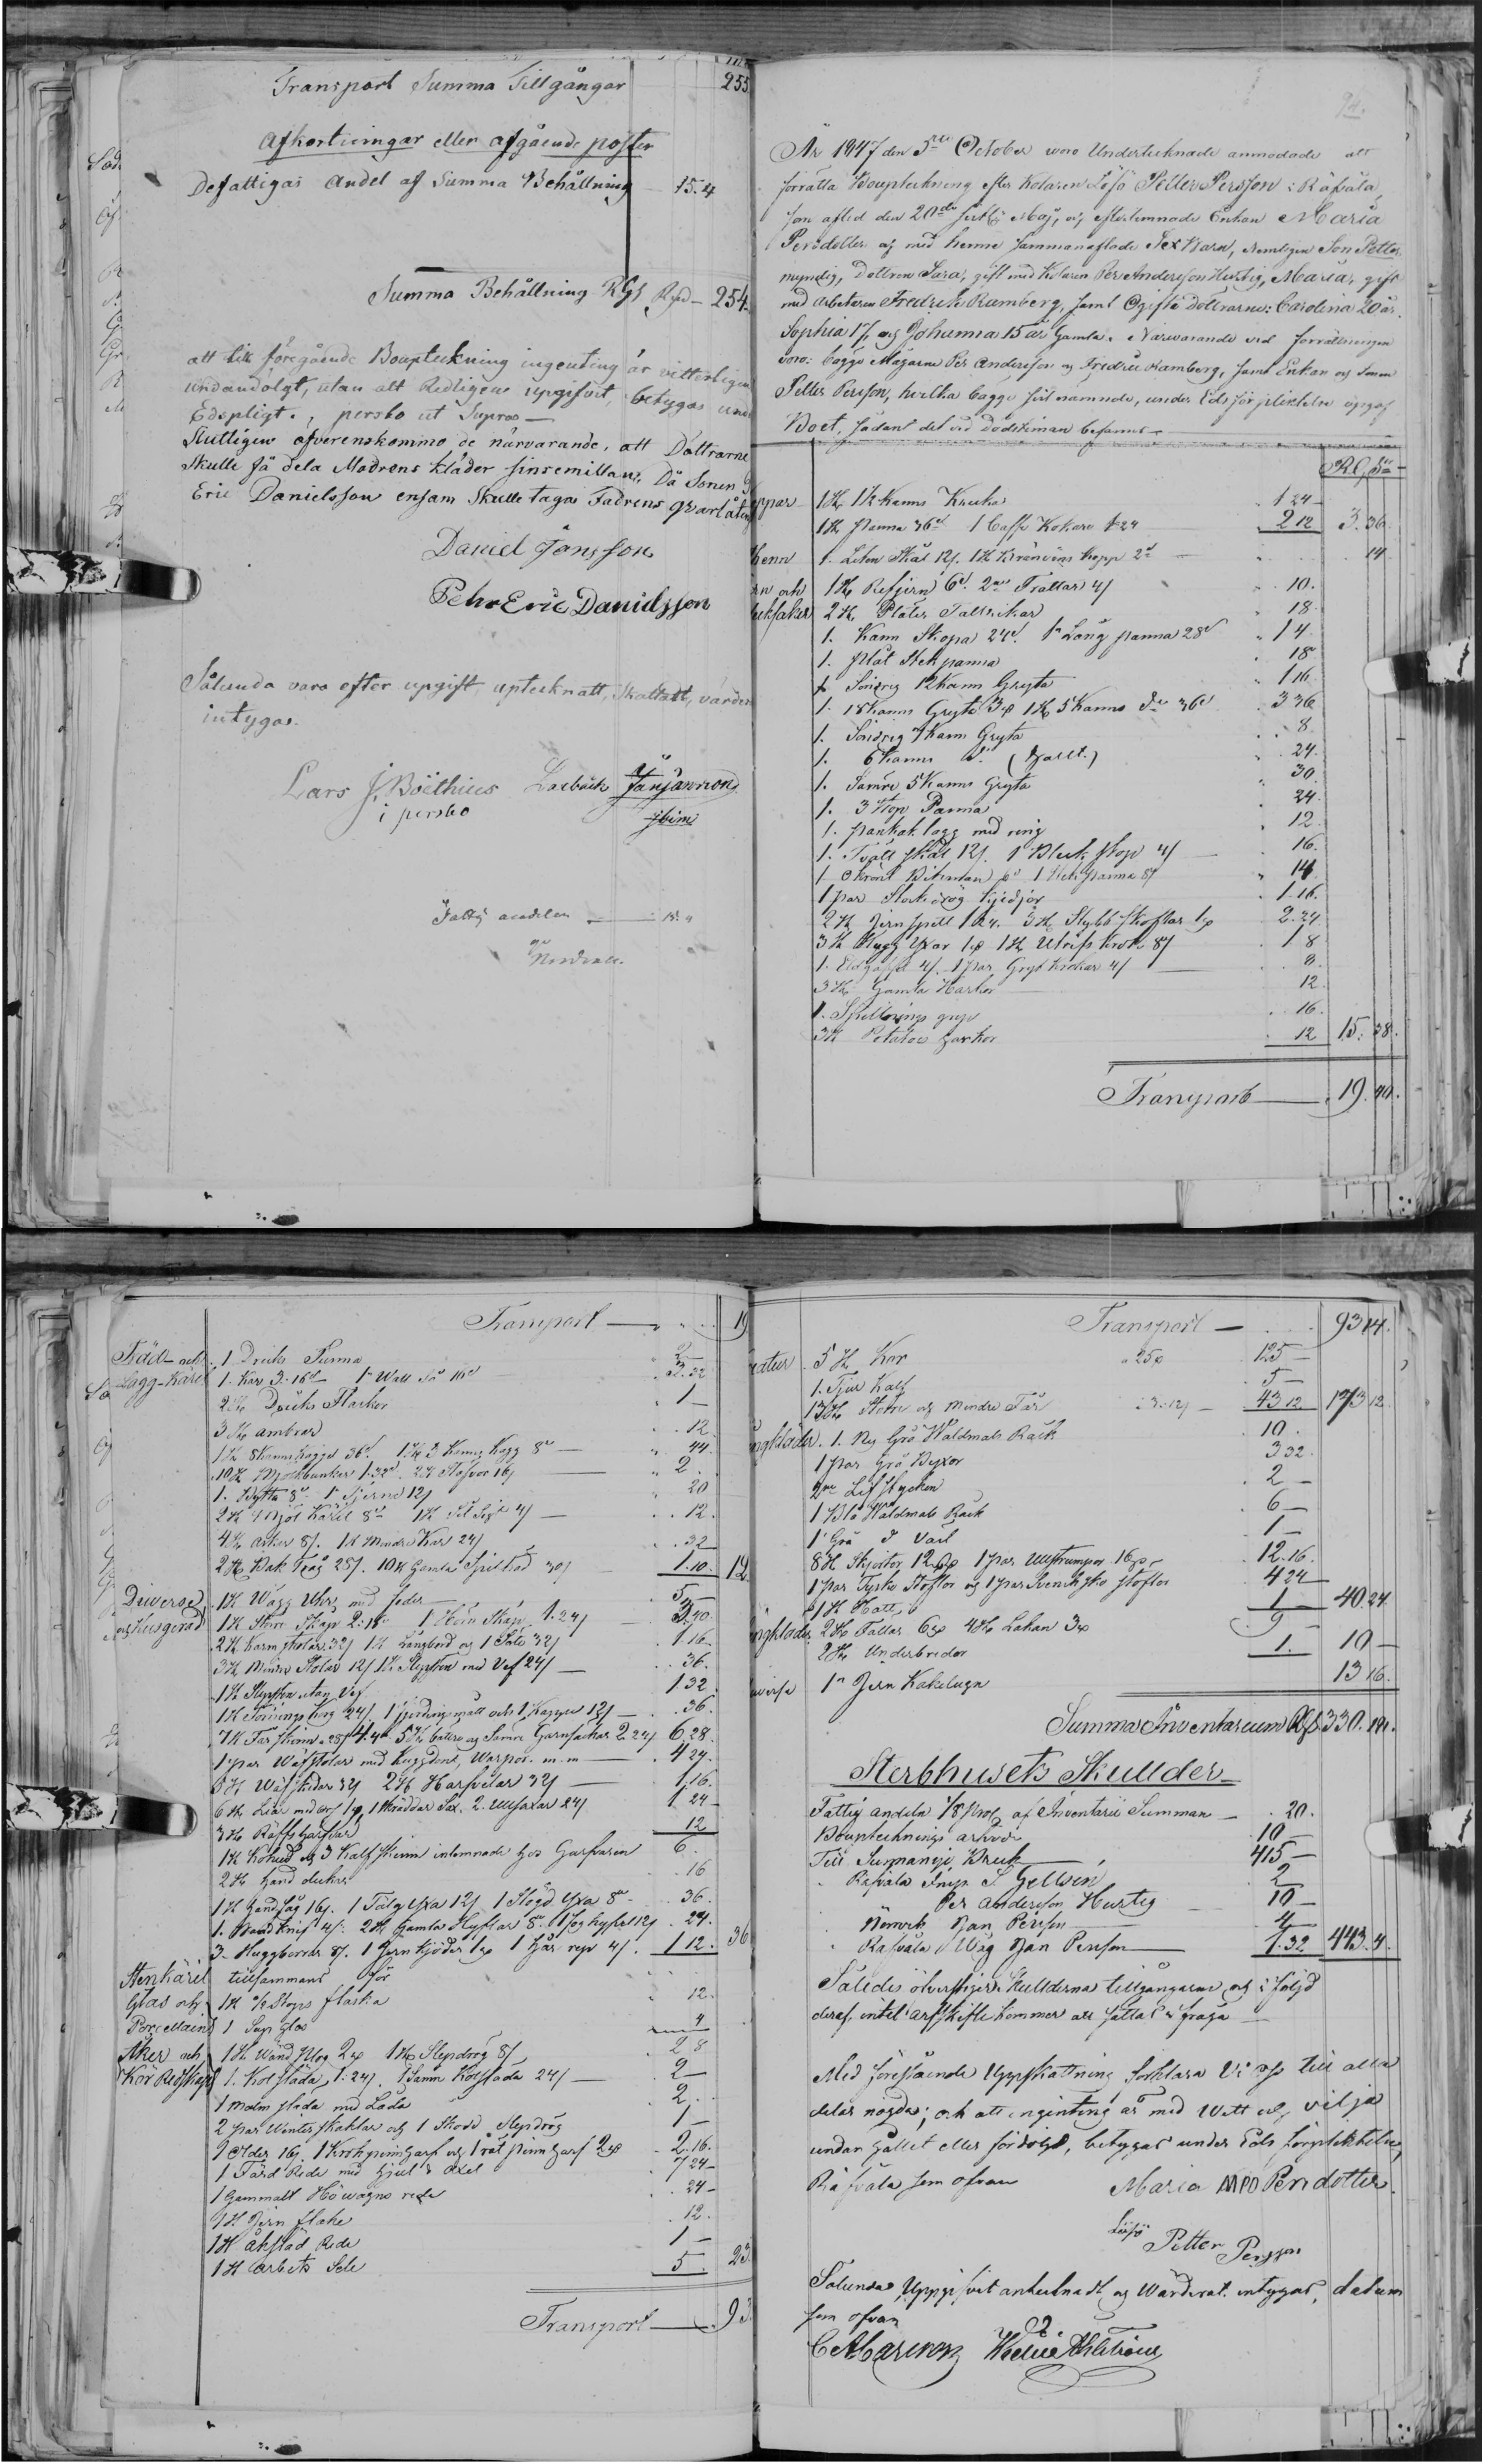 Transport Summa Tillgångar 255
Afkortningar eller afgående poster
Defattigas Andel af Summa Behållning 15.4
Summa Behållning RGs Rd — 254.
att tillföregående Bouptekning ingenting är vitterligen
undandolgt, utan att Redligen upgifvit, betygas und
Edspligt., persbo ut Supra —
Slutligen öfverenskommo de närvarande, att Döttrarne
Skulle få dela Modrens kläder sinsemillan, Då Sonen
Eric Danielsson ensam Skulle taga Fadrens qvarlåten
Daniel Jansson
Pehr Eric Danielsson
Sålunda vara efter upgift, upteknatt, Skattatt, värder
intygas.
Lars J. Boëthius
i persbo
Fattig andelen — 15.4
94.
År 1847 den 5te October woro Undertecknade anmodade att
förrätta Bouptekning efter Kolaren Löfö Petter Persson i Räfvåla,
som afled den 20de sistl: Maj, och efterlemnade Enkan Maria
Persdotter og med henne sammanaflade Sex Barn, Nemligen Son Petter
myndig, Dottren Sara, gift med Kolaren Per Andersson Hurtig, Maria, gift
med Arbetaren Fredrik Ramberg, samt Ogifta döttrarne: Carolina 20 år.
Sophia 17, og Johanna 15 år Gamla. Närvarande vid förrättningen
voro: bägge Mågarne Per Andersson og Fredric Ramberg, samt Enkan og Sonen
Petter Persson, hvilka bägge sist namnde, under Eds förpliktelse upgaf
Boet, sådant det vid dödstiman befanns —
RGs
1 St 1/2 Kanns Kruka 1 24
1 St panna 36 s 1 Caffe Kokare 1.24 2 12 3.36
1. Liten Skål 12 s. 1 St Bränvins kopp 2 s 14
1 St Refjern 6 s. 2ne Trattar 4 s 10.
2 St Plåter Tallrikar 18
1. Kann Skopa 24 s. 1 Lång panna 28 s 1 4
1. plåt Stekpanna 18
1 Sönrig 12 Kanns Gryta 1 16
1. 18 Kanns Gryta 3 1 St 5 Kanns do 36 s 3 36
1. Sönrig 7 Kanns Gryta 8
1. 6 Kanns do 24.
1. Sämre 5 Kanns Gryta 30
1. 3 Stop Panna 24
1. pankak lagg med ring 12
1. Tvätt skål 12 s. 1 Bleck stop 4 s 16.
1 par Stock drög kjedjor 1 16.
2 St Jernspett 1.24. 3 St Stybb skoflar 2.24
3 St Hugg Yxor 1 St Utrifs Krok 8 s 1 8
1. Eldgaffel 4 s. 1 par Gryt Krokar 4 s 8.
3 St Gamla Harkor 12
1. Spillnings grep 16.
3 St Potatoe harkor 12 15.28.
Transport — 19.40.
Transport — 19
Träd- och
Lagg-Käril
1 Dricks Tunna 2
1. Kar 3.16 1 Watt Så 16 s 3.32
2 St Dricks Flaskor 1 —
3 St ambrar 12
1 St 8 Kanns kagge 36 s. 1 St 3 Kanns Kagg 8 s 44.
10 St Mjölkbunkar 1.32. 2 St Stäfvor 16 s 2
1. Bytta 8 s 1 Tjerna 12 s 20
2 St Mjöl Käril 8 s 1 St Sil 4 s 12.
4 St Askar 8 s. 1 St Mindre Kar 24 s 32
2 St Bak Tråg 28 s. 10 St Gamla Spilkad 30 s 1.10. 12
Diverse
och Husgeråd
1 St Wägg Uhr med foder 5
1 St Större Skåp 2.16 1 Hörn Skåp 1.24 s 3.40
2 St Karmstolar 32 s 1 St Långbord og 1 Säte 32 s 1 16
3 St Mindre Stolar 12 s 1 St Slipsten med Vef 24 s 36.
1 St Slipsten utan Vef 1 32
1 St Torkings korg 24 s. 1 fjerdings mått och 1 Kappe 12 s 36.
7 St Får skinn 28 4.4 5 St bättre og Sämre Garnsäckar 2.24 6.28
1 par Wäfstolar med Kuggdon, Warpor m.m 4 24.
8 St Wäfskedar 32 s 2 St Harfvelar 32 s 1.16.
6 St Liar med orf 1, 1 skräddar Sax, 2 ullsaxar 24 s 1 24 —
3 St Räffs 12
1 St Kohud og 3 Kalfskinn inlemnade hos Garfvaren 6.
2 St hand dukar 16
1 St Handsåg 16 s. 1 Tälg yxa 12 s 1 Slögd Yxa 8 s 36.
1. Bandknif 4 s. 2 St Gamla Hyflar 8 s 24.
3 Huggborrar 8 s. 1 Jern kjädja 1 Hår rep 4 s. 1 12. 36
Stenkäril
Glas och
Porcellaine
tillsammans för
1 St 1/2 Stops flaska 12.
1 Sup glas 4
Åker och
Kör Redskap
1 St Wänd plog 2 1 St Slepdrög 8 s 2 8
1. Kolsläda 1.24 s. 1 Sämre Kolsläda 24 s 2 —
1 malm släda med Låda 2.
2 par Winterskaklar og 1 Skodd Slepdrög 1 —
2.16.
1 Färd Rede med hjul & axel 7 24 —
1 Gammalt Höwagns rede 24 —
1 St Jern flake 12.
1 St Åksläd Rede 1 —
1 St Arbets Sele 5 23
Transport — 93
Transport — 93 14.
5 St Kor 25 125 —
1. Tjur Kalf 5 —
13 St Större og Mindre Får 43 12 173 12.
1. Ny Grå Waldmals Råck 10.
1 par Grå Byxor 3 32
2ne Lifstycken 2 —
1 Blå Waldmals Råck 6 —
1 —
8 St Skjortor 12 1 par Ullstrumpor 16 s 12.16.
1 par Tyska Stöflor og 1 par Svensksko stöflor 4 24
1 St Hatt 1 — 40.24.
2 St Fällar 6 4 St Lakan 3 9
2 St Underbredor 1. 10 —
1 Jern Kakelugn 13 16.
Summa Inventarium RGs 330.14.
Sterbhusets Skullder —
Fattig andeln 1/8 proc. af Inventarie Summan 20.
Bouptecknings arfvode 10 —
Till Bruk 415 —
Rafvåla Insp S Gellsén 2
Per Andersson Hurtig 10 —
Jan Persson 4
Rafvåla Jan Persson 1.32 443.4.
Således öfverstiger Skullderna tillgångarne og i följd
deraf intet arfskifte kommer att sättas i fråga —
Med förestående Uppskattning förklara Vi oss till alla
delar nögda; och att ingenting är med Wett och vilja
undan gället eller fördolgt, betygas under Eds förpliktelse,
Räfvåla som ofvan Maria MPD Persdotter.
Löfö Petter Persson
Sålunda Uppgifvit antecknadt og Wärderat intygas, datum
som ofvan